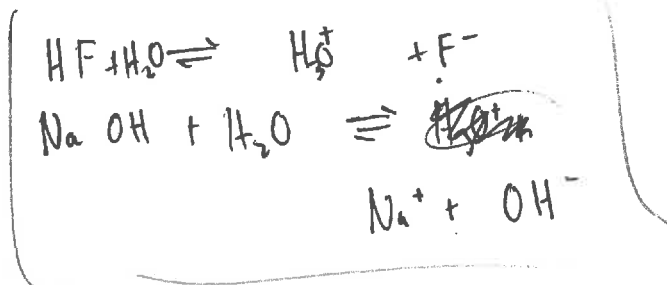 HF + H₂O ⇌ H₃O⁺ + F⁻
Na OH + H₂O ⇌
Na⁺ + OH⁻